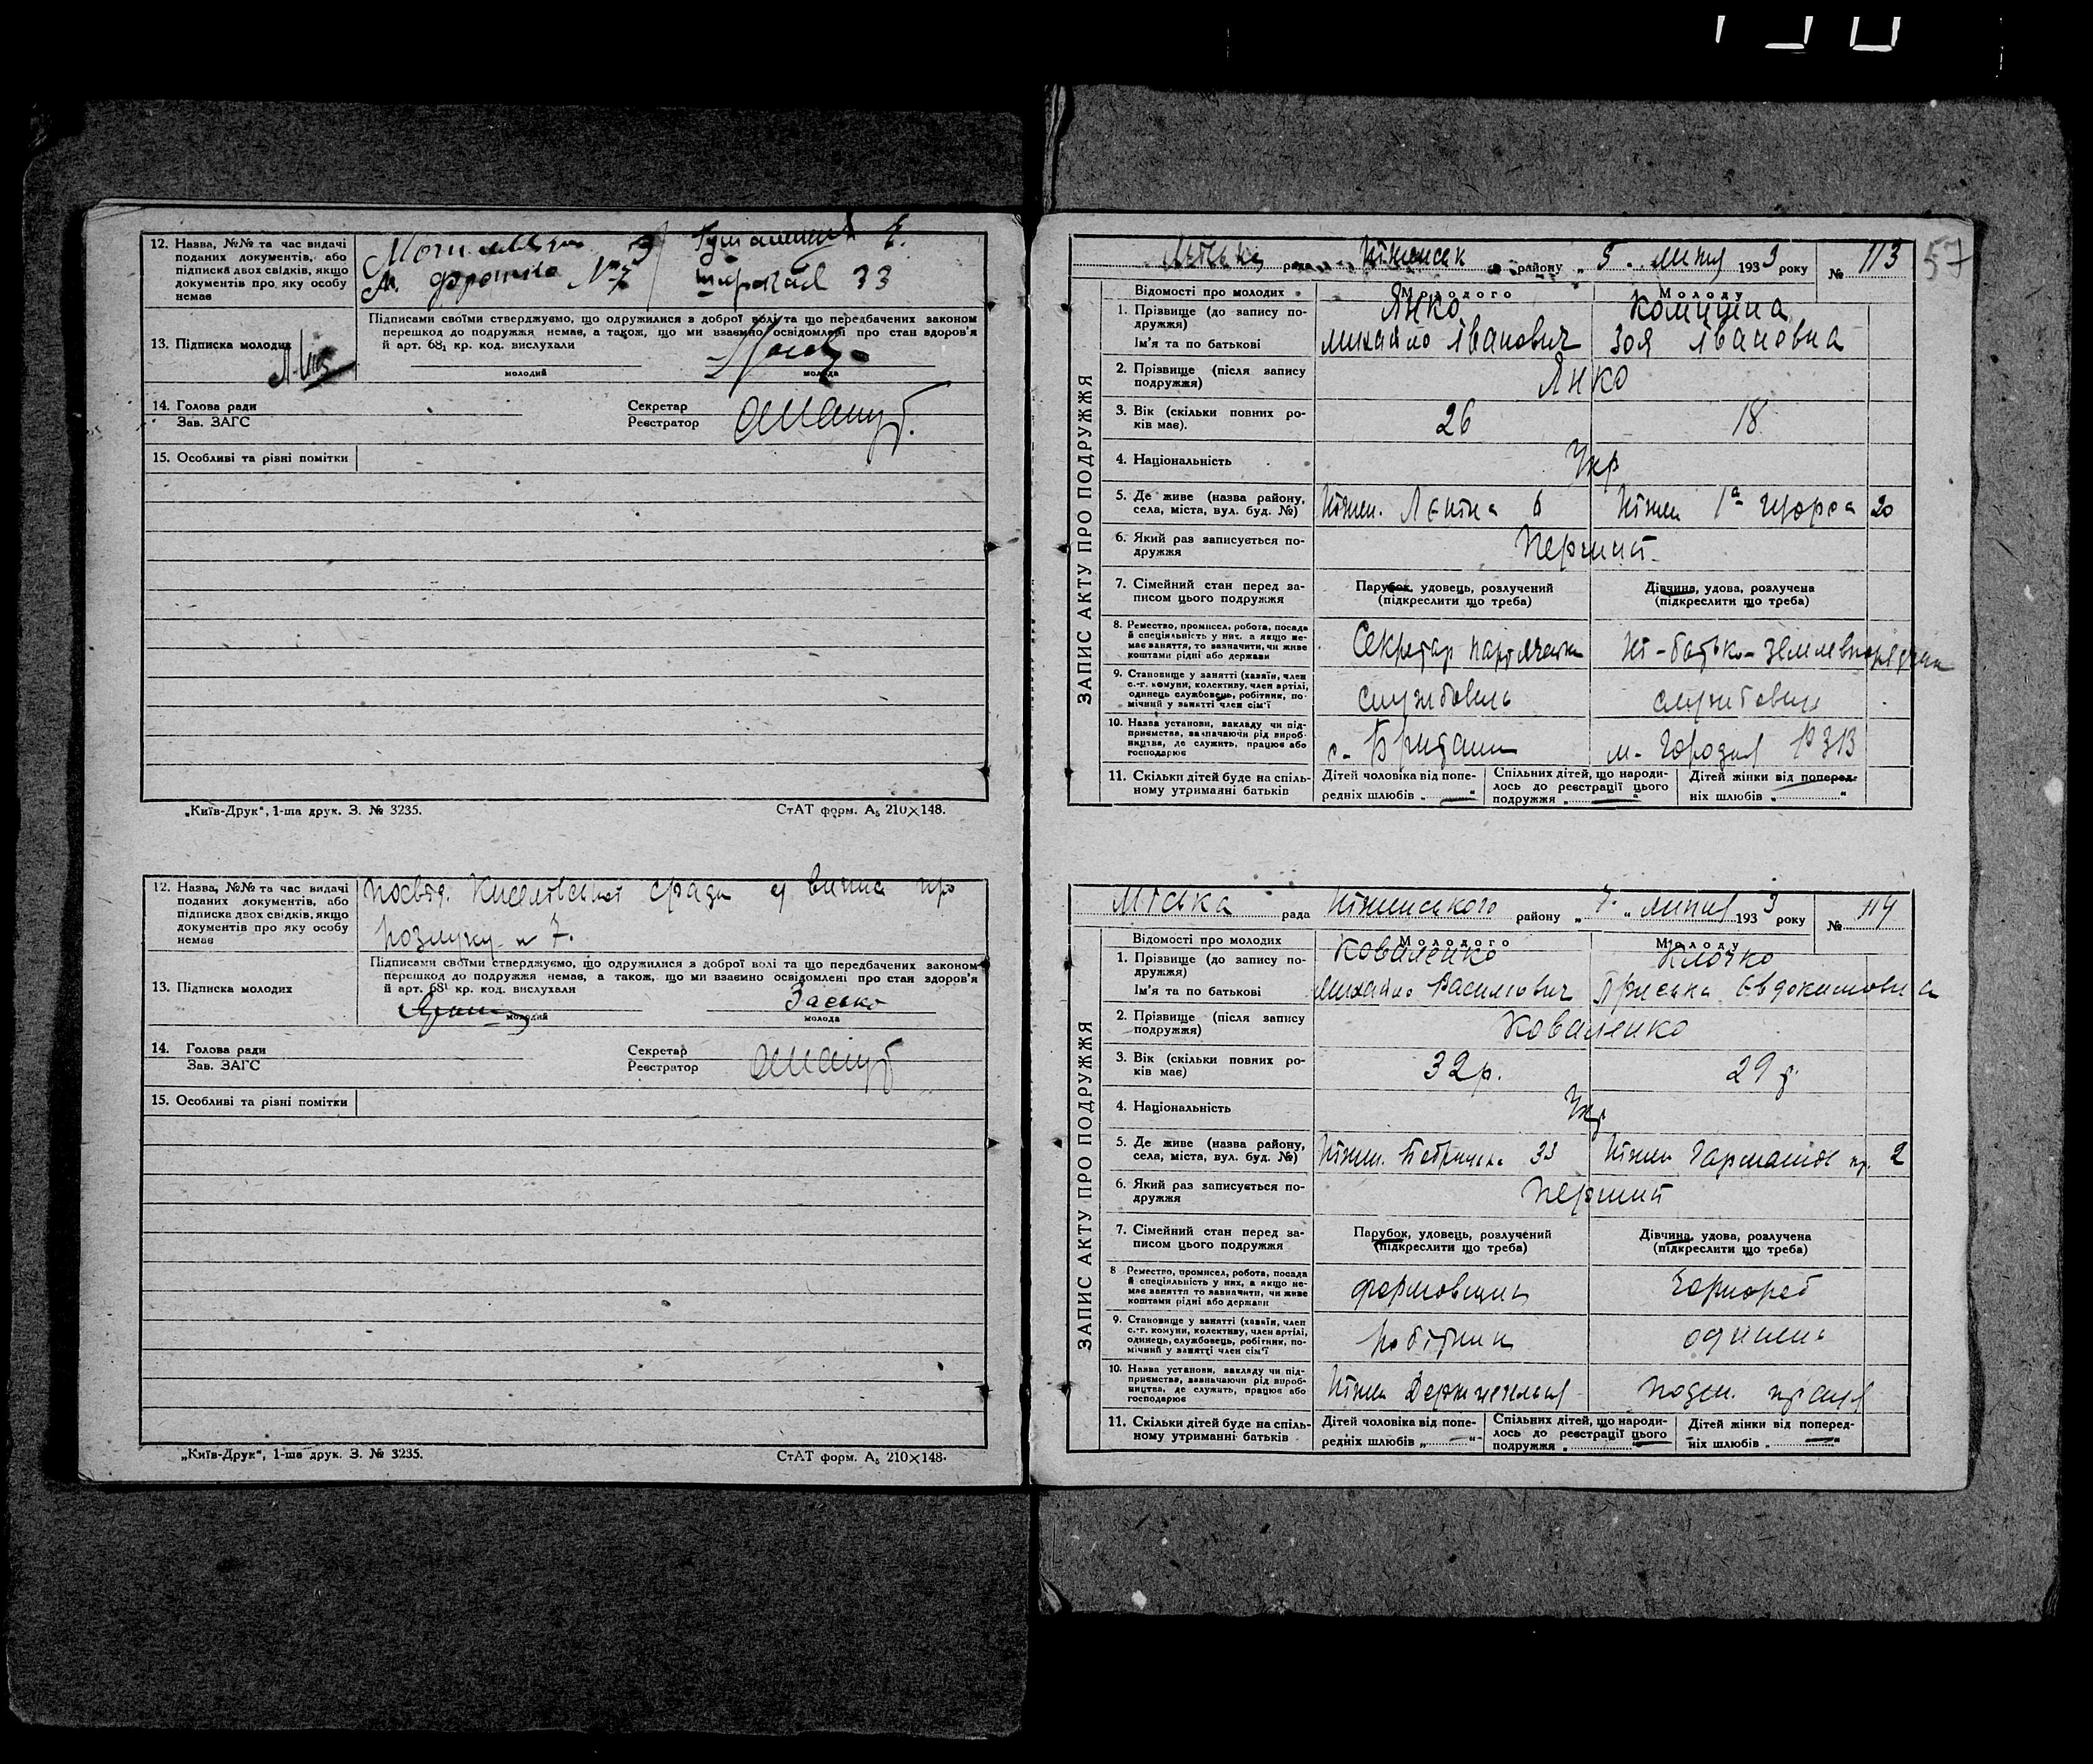 12. Назва, №№ та час видачі
поданих документів, або
підписка двох свідків, якщо
документів про яку особу
немає
№7
33
13. Підписка молодих
Підписами своїми стверджуємо, що одружилися в доброї волі та що передбачених законом
перешкод до подружжя немає, а також, що ми взаємно освідомлені про стан здоров'я
й арт. 68₁ кр. код. вислухали
молодий
молода
14. Голова ради
Зав. ЗАГС
Секретар
Реєстратор
15. Особливі та різні помітки
„Київ-Друк“, 1-ша друк. З. № 3235.
СтАТ форм. А₅ 210×148.
12. Назва, №№ та час видачі
поданих документів, або
підписка двох свідків, якщо
документів про яку особу
немає
посвід. сради й випис про
розлуку № 7.
13. Підписка молодих
Підписами своїми стверджуємо, що одружилися в доброї волі та що передбачених законом
перешкод до подружжя немає, а також, що ми взаємно освідомлені про стан здоров'я
й арт. 68¹ кр. код. вислухали
молодий
Засько
молода
14. Голова ради
Зав. ЗАГС
Секретар
Реєстратор
15. Особливі та різні помітки
„Київ-Друк“, 1-ша друк. З. № 3235.
СтАТ форм. А₅ 210×148.
57
ЗАПИС АКТУ ПРО ПОДРУЖЖЯ
Міська рада району „ 5. липня 1933 року № 113
Відомості про молодих Молодого Молоду
1. Прізвище (до запису подружжя) Янко
Ім'я та по батькові Михайло Іванович Зоя Івановна
2. Прізвище (після запису подружжя) Янко
3. Вік (скільки повних років має). 26 18
4. Національність Укр
5. Де живе (назва району, села, міста, вул. буд. №) Ніжен. Леніна 6 Ніжен 1а Щорса 20
6. Який раз записується подружжя Перший
7. Сімейний стан перед записом цього подружжя Парубок, удовець, розлучений (підкреслити що треба) Дівчина, удова, розлучена (підкреслити що треба)
8. Ремество, промисел, робота, посада й спеціяльність у них, а якщо немає заняття, то зазначити, чи живе коштами рідні або держави Секретар
9. Становище у занятті (хазяїн, член с.-г. комуни, колективу, член артілі, одинець службовець, робітник, помічний у занятті член сім'ї службовець службовець
10. Назва установи, закладу чи підприємства, зазначаючи рід виробництва, де служить, працює або господарює м. Городня
11. Скільки дітей буде на спільному утриманні батьків Дітей чоловіка від попередніх шлюбів „ “ Спільних дітей, що народилось до реєстрації цього подружжя „ “ Дітей жінки від попередніх шлюбів „ “
ЗАПИС АКТУ ПРО ПОДРУЖЖЯ
Міська рада Ніженського району „ 7. „ липня 1933 року № 114
Відомості про молодих Молодого Молоду
1. Прізвище (до запису подружжя) Коваленко Клочко
Ім'я та по батькові Михайло Васильович Пріська Евдокимовна
2. Прізвище (після запису подружжя) Коваленко
3. Вік (скільки повних років має) 32р. 29 р.
4. Національність Укр
5. Де живе (назва району, села, міста, вул. буд. №) Ніжен. 33 Ніжен 2
6. Який раз записується подружжя Перший
7. Сімейний стан перед записом цього подружжя Парубок, удовець, розлучений (підкреслити що треба) Дівчина, удова, розлучена (підкреслити що треба)
8 Ремество, промисел, робота, посада й спеціяльність у них, а якщо немає заняття то зазначити, чи живе коштами рідні або держави формовщик Чорнороб
9. Становище у занятті (хазяїн, член с.-г. комуни, колективу, член артілі, одинець, службовець, робітник, помічний у занятті член сім'ї робітник одинець
10. Назва установи, закладу чи підприємства, зазначаючи рід виробництва, де служить, працює або господарює Ніжен поден. праця
11. Скільки дітей буде на спільному утриманні батьків Дітей чоловіка від попередніх шлюбів „ “ Спільних дітей, що народилось до реєстрації цього подружжя „ Дітей жінки від попередніх шлюбів „ “